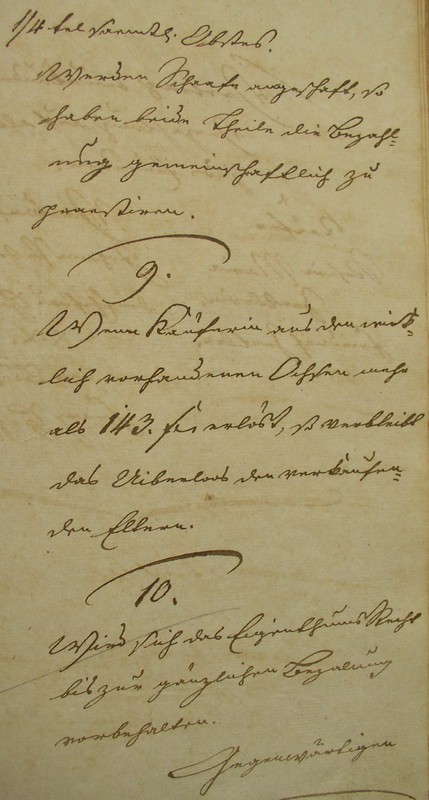 1/4 tel saemtl. Obstes.
Werden Schaafe angeschaft, so
haben beide Theile die Bezahl=
nug gemeinschaftlich zu
praestiren.
9.
Wenn Käuferin aus den wirk=
lich vorhandenen Ochsen mehr
als 143. f erlöst, so verbleibt
das Uiberloos den verkaufen=
den Eltern.
10.
Wird sich das Eigenthums Recht
bis zur gänzlichen Bezalung
vorbehalten.
Gegenwärtigen